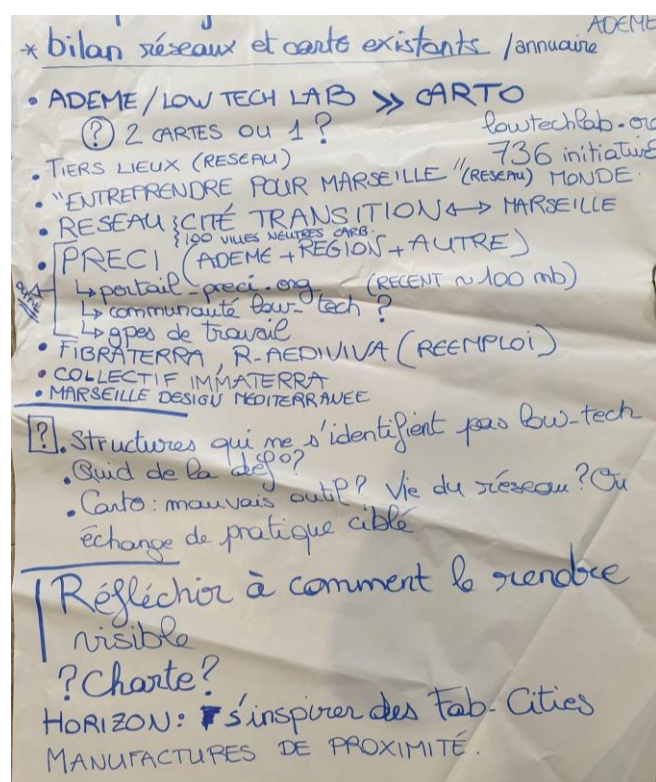 ADEME
* bilan réseaux et carto existants /annuaire
• ADEME/LOW TECH LAB >> CARTO
? 2 CARTES OU 1 ?
lowtechlab.org
• TIERS LIEUX (RESEAU)
736 initiatives
• "ENTREPRENDRE POUR MARSEILLE" (RESEAU) MONDE.
• RESEAU } CITÉ TRANSITION <-> MARSEILLE
} 100 VILLES NEUTRES CARB.
• PRECI (ADEME + REGION + AUTRE)
↳ portail-preci.org (RECENT ~ 100 mb)
↳ communauté low-tech ?
↳ gpes de travail
• FIBRATERRA, R-AEDIVIVA (REEMPLOI)
• COLLECTIF IMMATERRA
• MARSEILLE DESIGN MEDITERRANEE
?. Structures qui ne s'identifient pas low-tech
• Quid de la déf°?
• Carto : mauvais outil? Vie du réseau? Ou
échange de pratique ciblé
Réfléchir à comment le rendre
visible
? Charte?
HORIZON: s'inspirer des Fab-Cities
MANUFACTURES DE PROXIMITÉ.